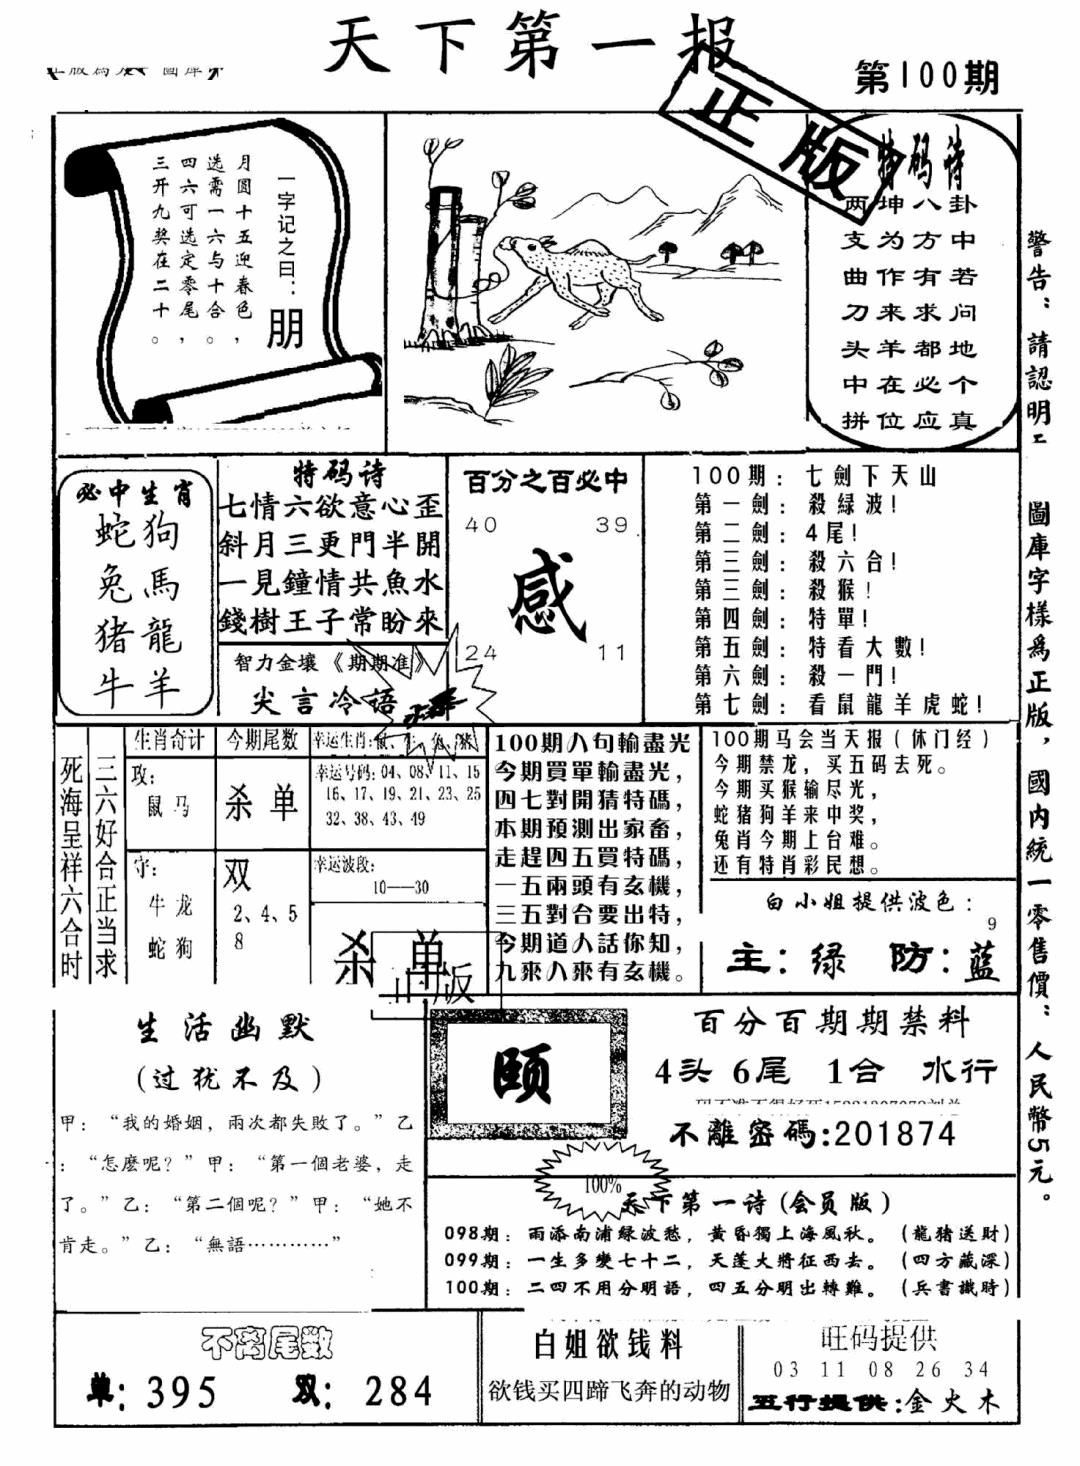 天下第一报
正版
第100期
一字记之曰：
朋
月圆十五迎春色，
选需一六与十合。
四六可选定零尾，
三开九奖在二十。
特码诗
两坤八卦
支为方中
曲作有若
刀来求问
头羊都地
中在必个
拼位应真
警告：請認明
圖庫字樣為正版，國內統一零售價：人民幣5元。
必中生肖
蛇狗
兔馬
猪龍
牛羊
特码诗
七情六欲意心歪
斜月三更門半開
一見鐘情共魚水
錢樹王子常盼來
智力金壤《期期准》
尖言冷語
百分之百必中
40 39
感
24 11
100期：七劍下天山
第一劍：殺緑波！
第二劍：4尾！
第三劍：殺六合！
第三劍：殺猴！
第四劍：特單！
第五劍：特看大數！
第六劍：殺一門！
第七劍：看鼠龍羊虎蛇！
死海呈祥六合时
三六好合正当求
生肖奇计
攻：
鼠马
守：
牛龙
蛇狗
今期尾数
杀单
双
2、4、5
8
幸运生肖：
幸运号码：04、08、11、15
16、17、19、21、23、25
32、38、43、49
幸运波段：
10——30
杀单
正版
100期八句輸盡光
今期買單輸盡光，
四七對開猜特碼，
本期預測出家畜，
走趕四五買特碼，
一五兩頭有玄機，
三五對合要出特，
今期道人話你知，
九來八來有玄機。
100期马会当天报（休门经）
今期禁龙，买五码去死。
今期买猴输尽光，
蛇猪狗羊来中奖，
兔肖今期上台难。
还有特肖彩民想。
白小姐提供波色：
9
主：绿 防：蓝
生活幽默
（过犹不及）
甲：“我的婚姻，兩次都失敗了。”乙
：“怎麽呢？”甲：“第一個老婆，走
了。”乙：“第二個呢？”甲：“她不
肯走。”乙：“無語…………”
颐
百分百期期禁料
4头 6尾 1合 水行
不離密碼：201874
100%
天下第一诗（会员版）
098期：雨添南浦緑波愁，黄昏獨上海風秋。（龍猪送財）
099期：一生多變七十二，天蓬大將征西去。（四方藏深）
100期：二四不用分明語，四五分明出轉難。（兵書讖時）
不离尾数
单：395 双：284
白姐欲钱料
欲钱买四蹄飞奔的动物
旺码提供
03 11 08 26 34
五行提供：金火木